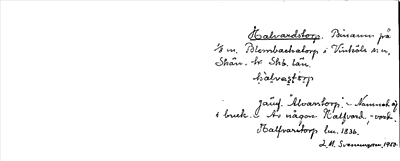 Halvardstorp. Binamn på
1/8 m. Blombackatorp i Vintrosa sn,
Skån. hr Skb. län.
halvastorp
Jämf. Alvarstorp. – Namnet ej
i bruk. – Av någon Halfvard, -vord.
Halfvarstorp lm. 1836.
J. M. Svenningson, 1933.